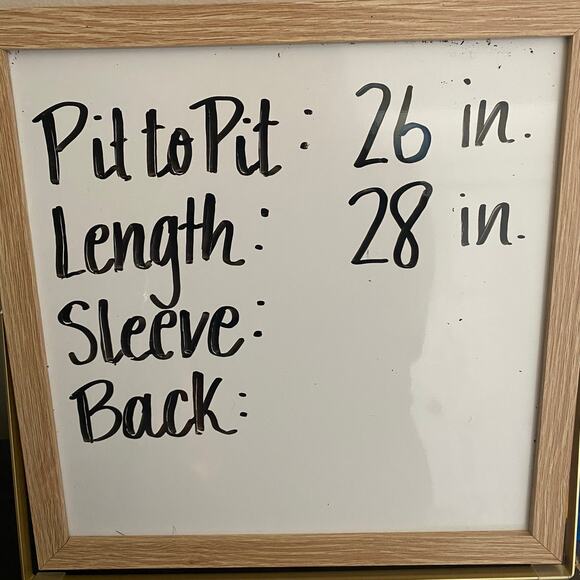 Pit to Pit: 26 in.
Length: 28 in.
Sleeve:
Back: